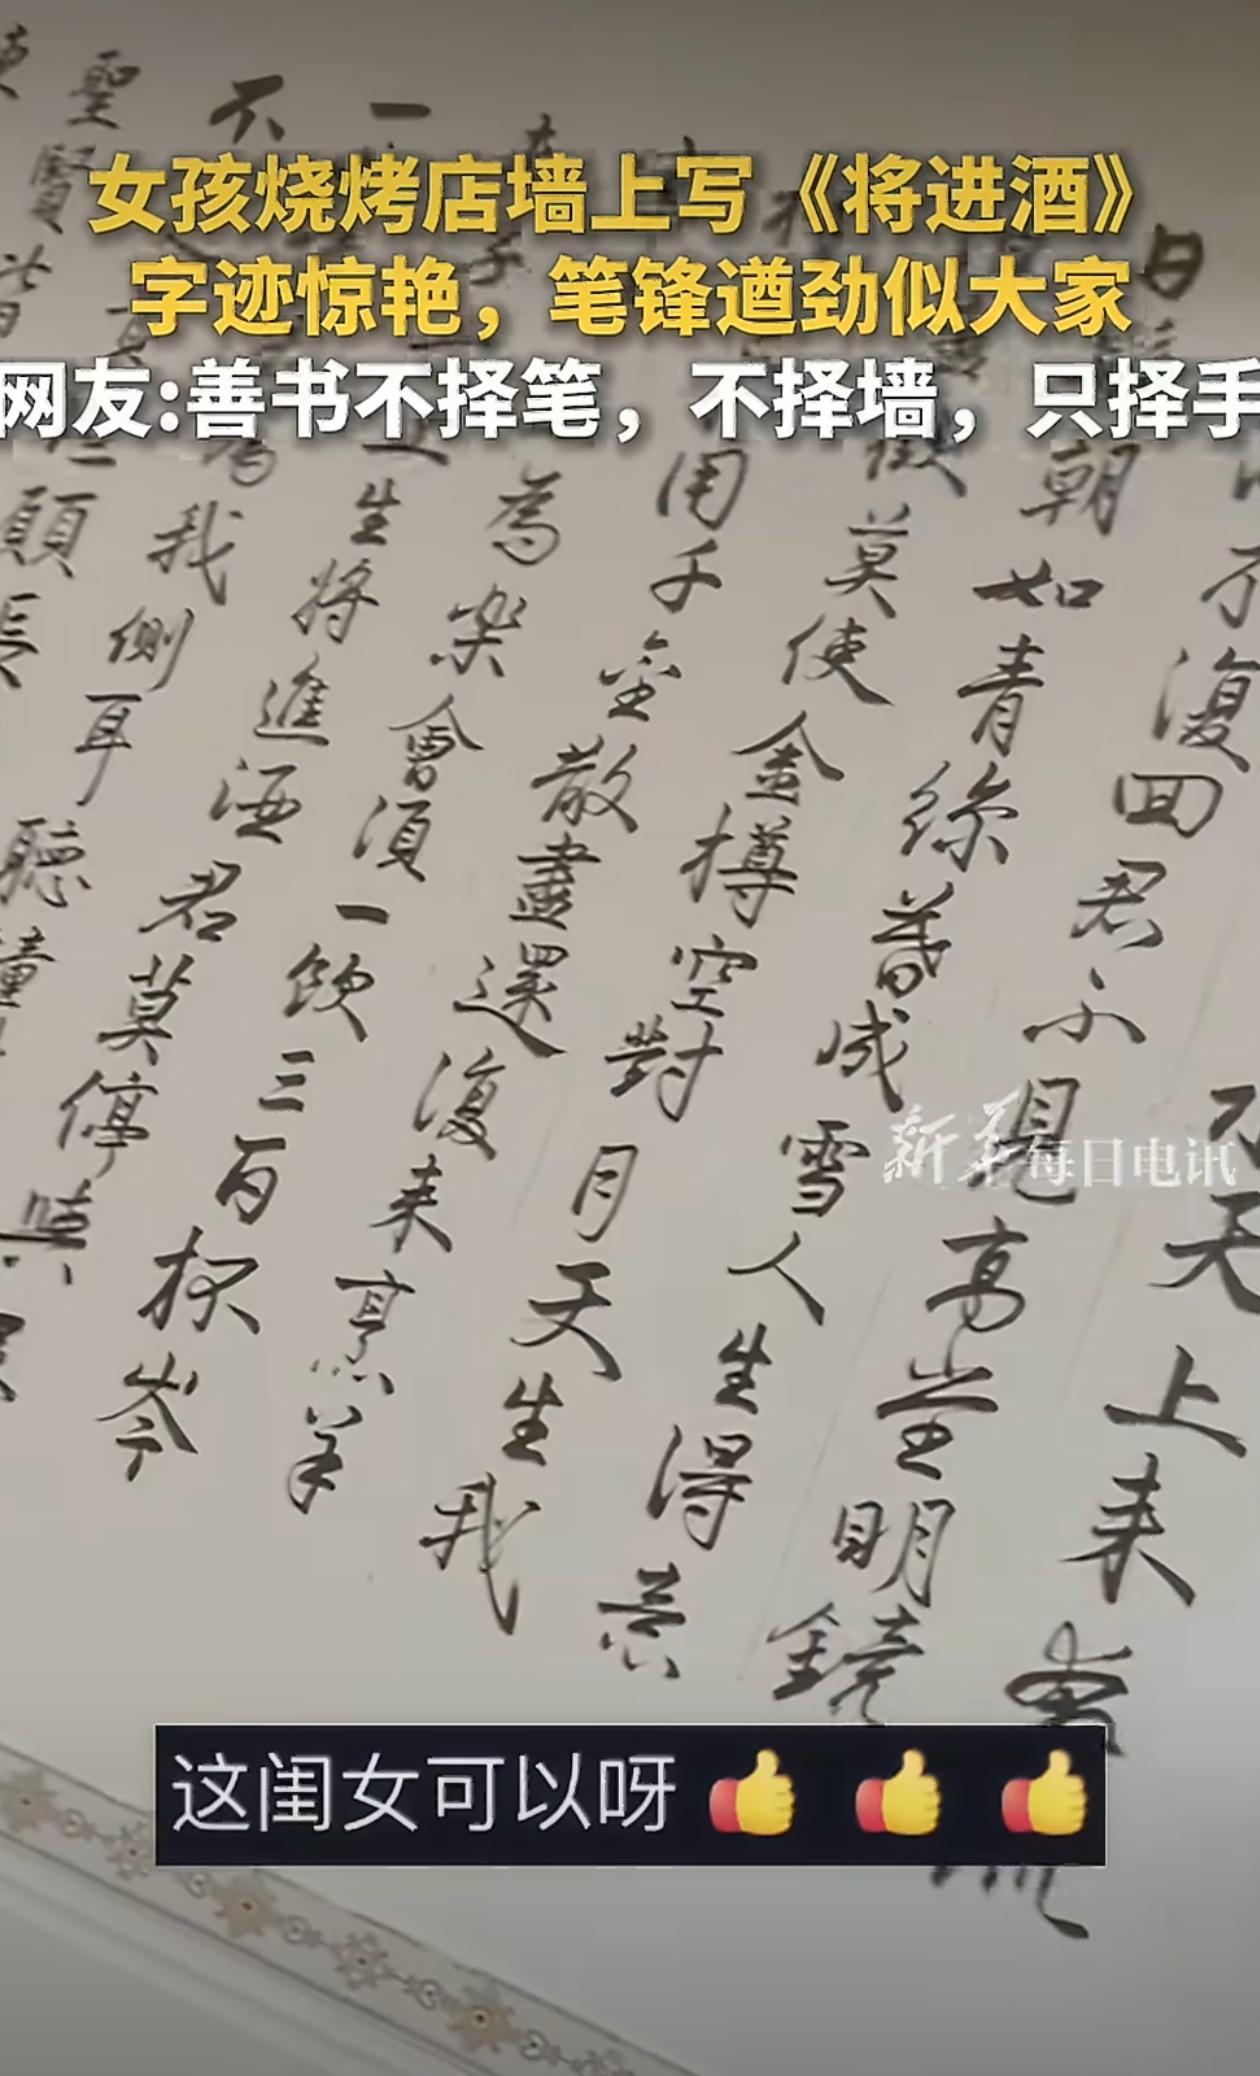 女孩烧烤店墙上写《将进酒》
字迹惊艳，笔锋遒劲似大家
网友:善书不择笔，不择墙，只择手
天上来
不復回君不見高堂明鏡
朝如青絲暮成雪人生得意
莫使金樽空對月天生我
用千金散盡還復来烹羊
為樂會須一飲三百杯岑
生將進酒君莫停與
我側耳聽
不
一
聖賢皆
願長
新华每日电讯
这闺女可以呀👍👍👍